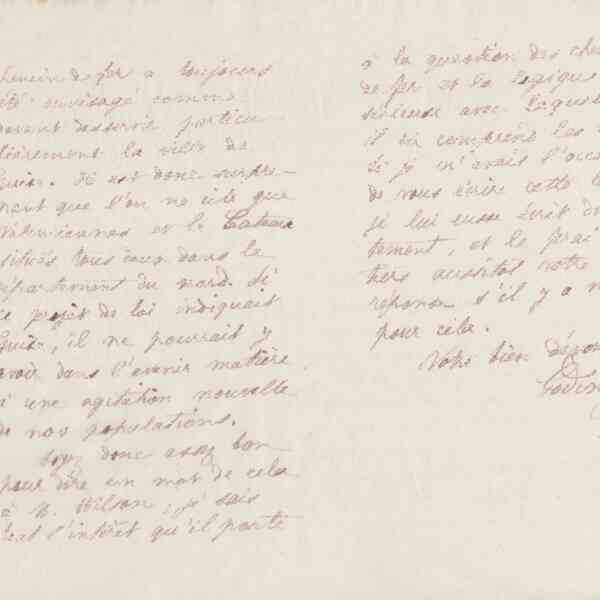 chemin de fer a toujours
été envisagé comme
devant desservir particu
lièrement la ville de
Guise. Il est donc surpre-
nant que l'on ne cite que
Valenciennes et le Cateau
situés tous deux dans le
département du nord. Si
ce projet de loi indiquait
Guise, il ne pourrait y
avoir dans l'avenir matière
à une agitation nouvelle
de nos populations.
Soyez donc assez bon
pour dire un mot de cela
à M. Wilson, je sais
tout l'intérêt qu'il porte
à la question des che
de fer et la logique
sérieuse avec laquel
il en comprend les
Si je n'avais l'occa
de vous écrire cette le
je lui eusse écrit di
tement, et le ferai
tiers aussitôt votre
réponse s'il y a
pour cela.
Votre bien dévou
Godin